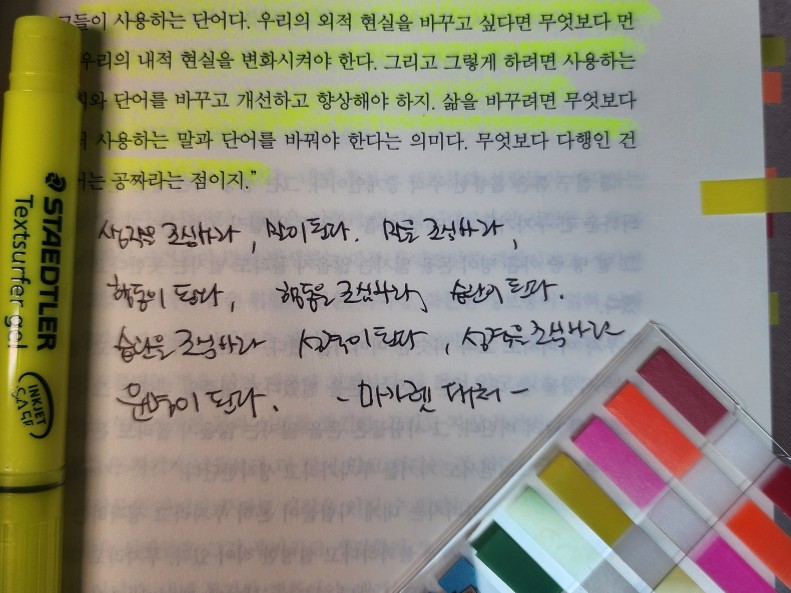 그들이 사용하는 단어다. 우리의 외적 현실을 바꾸고 싶다면 무엇보다 먼
우리의 내적 현실을 변화시켜야 한다. 그리고 그렇게 하려면 사용하는
단어를 바꾸고 개선하고 향상해야 하지. 삶을 바꾸려면 무엇보다
사용하는 말과 단어를 바꿔야 한다는 의미다. 무엇보다 다행인 건
공짜라는 점이지.”
생각을 조심하라, 말이 된다. 말을 조심하라,
행동이 된다, 행동을 조심하라, 습관이 된다.
습관을 조심하라 성격이 된다, 성격을 조심하라
운명이 된다. - 마가렛 대처 -
STAEDTLER
Textsurfer gel
INKJET
SAFE